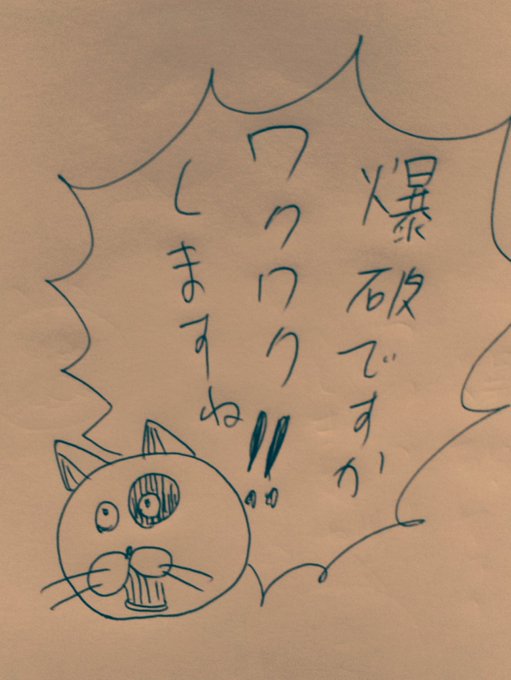 爆破ですか
ワクワク
しますね!!